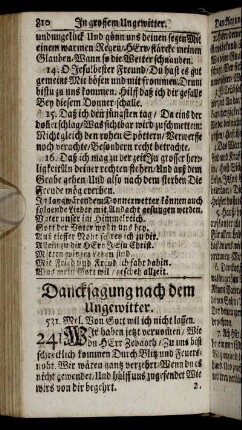 810 In grossem Ungewitter.
undunglück Und gönn uns deinen segen Mit
einem warmen Regen/HErr/stärcke meinen
Glauben Wann so die Wetter schnauben.
14. O JEsu bester Freund/Du hast es gut
gemeint Mit bösen und mit frommen Drum
bistu zu uns kommen Hilff daß ich dir gefalle
Bey diesem Donner-schalle.
15. Daß ich den jüngsten tag/ Da eins der
Nicht gleich den rohen Spöttern Verwerffe
noch verachte/Besondern recht betrachte.
16. Daß ich mag zu der zeit In grosser herr-
ligkeit Zu deiner rechten stehen Und auß dem
Grabe gehen Und also nach dem sterben Die
Freude mög ererben.
In langwärendem Donnerwetter können auch
folgende Lieder mit Andacht gesungen werden.
Vater unser im Himmelreich.
Gott der Vater wohn uns bey.
Aus tieffer Noht schrey ich zu dir.
Allein zu dir HErr JEsu Christ.
Mitten wir im leben sind.
Mit Fried und Freud ich fahr dahin.
Was mein Gott will/ gescheh allzeit.
Dancksagung nach dem
Ungewitter.
531. Mel. Von Gott wil ich nicht lassen.
241 Wir haben jetzt vernommen/ Wie
du HErr Zebaoth/ Zu uns bist
schrecklich kommen Durch Blitz und Feuers-
noht. Wir wären gantz verzehrt/Wenn du es
nicht gewendet/Und hülff uns zugesendet Wie
wirs von dir begehrt. 2.